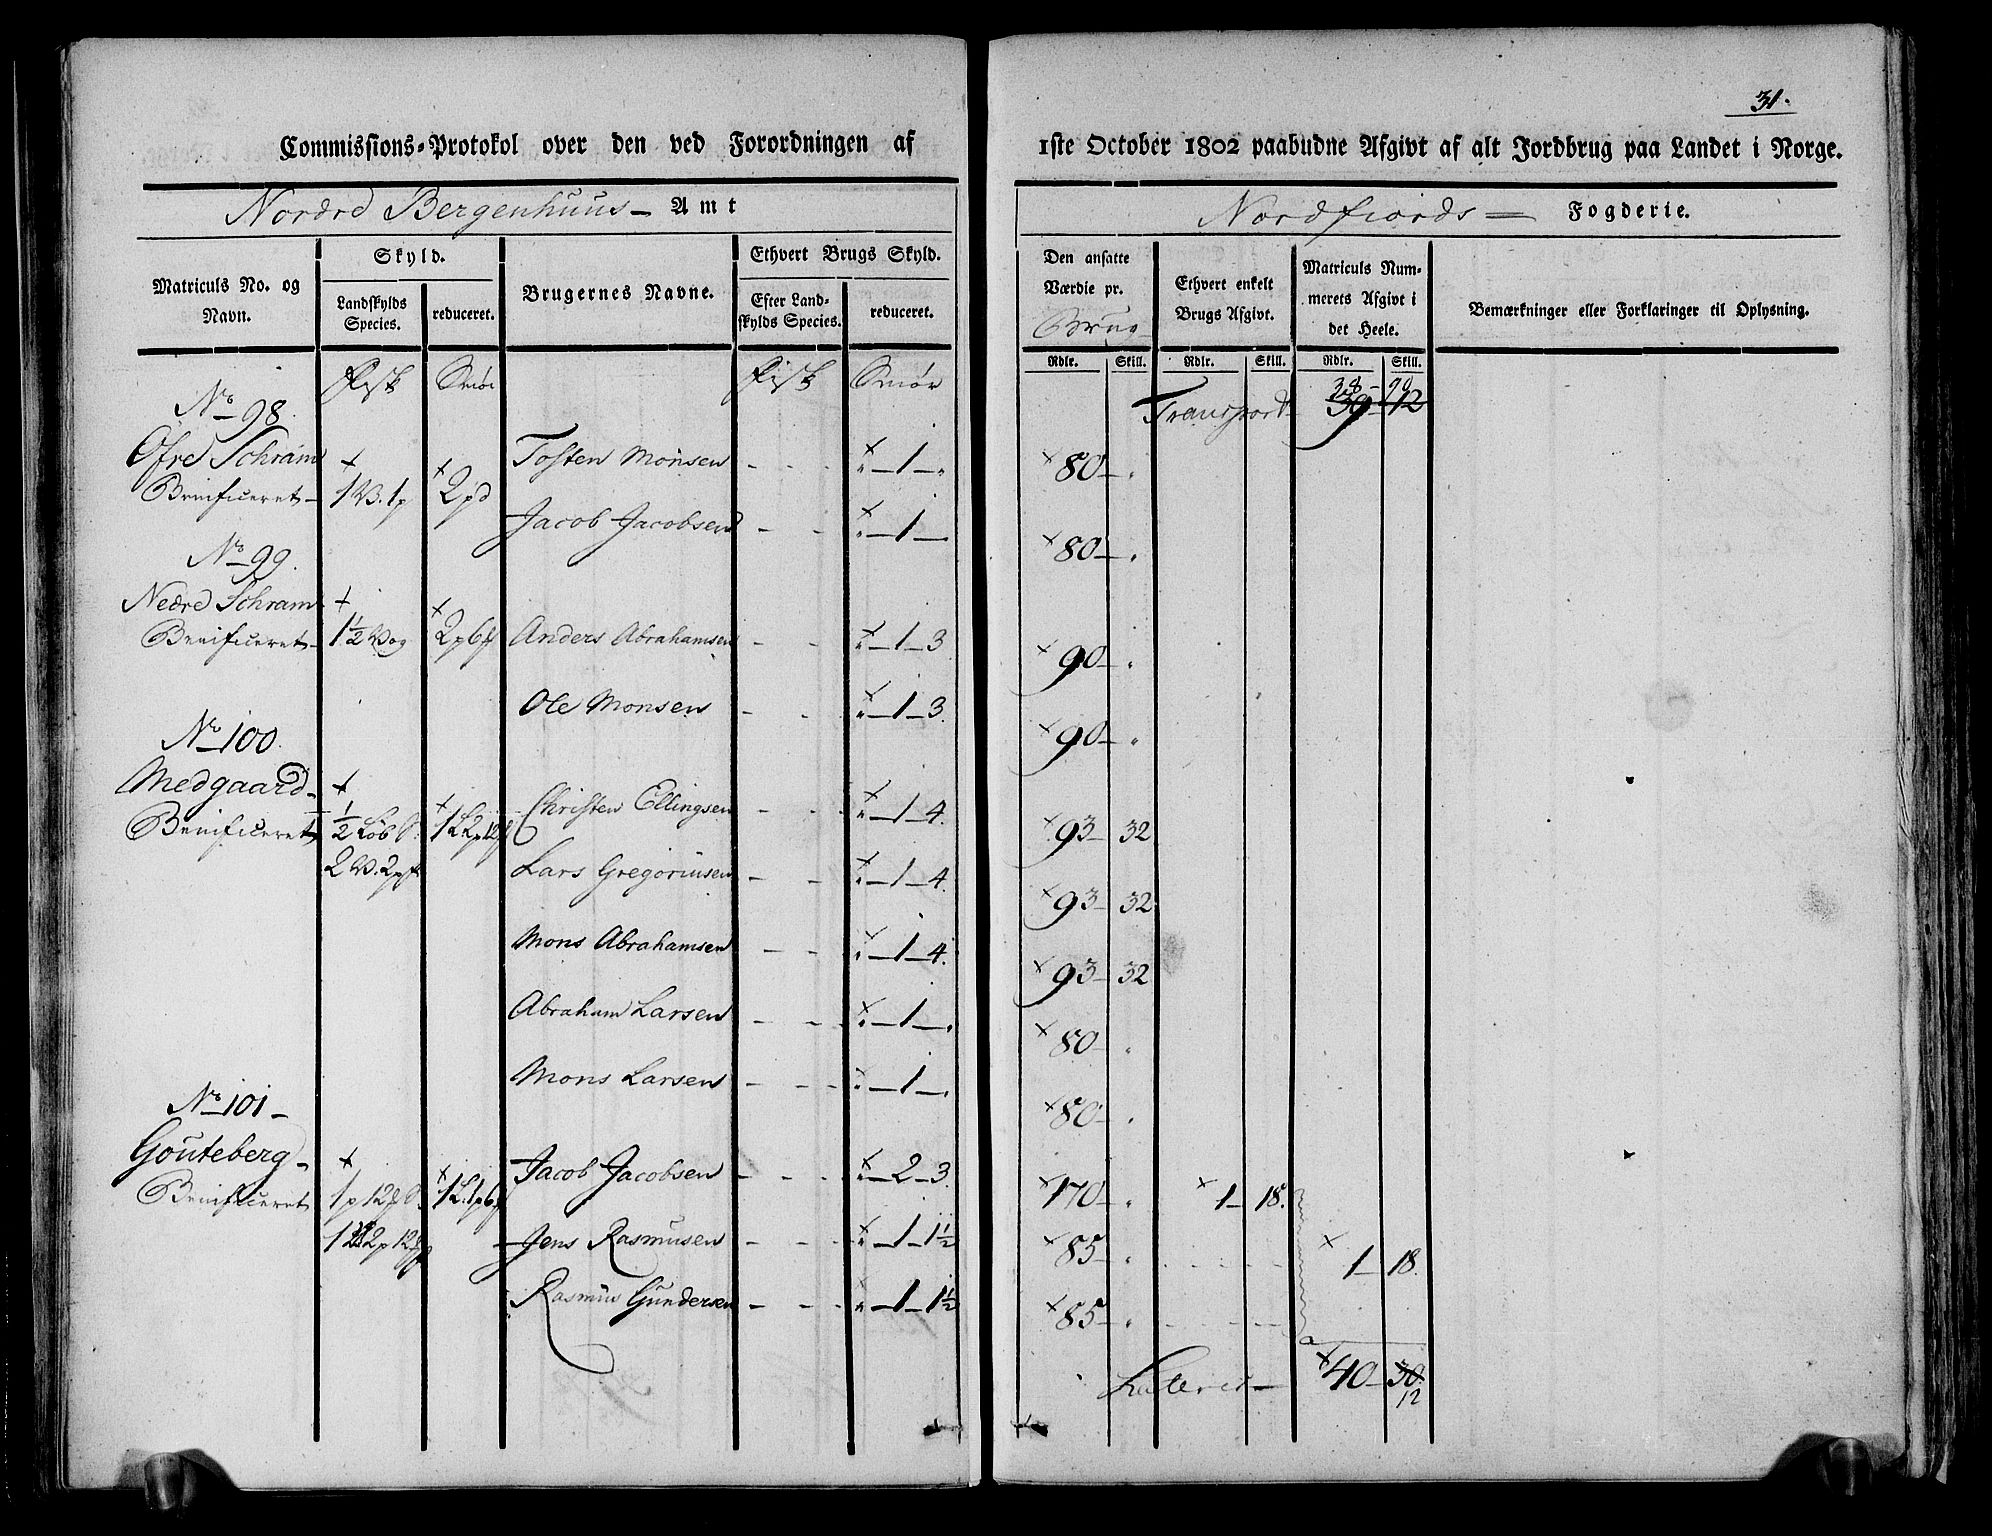 31.
Commissions-Protokol over den ved Forordningen af 1ste October 1802 paabudne Afgivt af alt Jordbrug paa Landet i Norge.
Nordre Bergenhuus Amt
Nordfiords Fogderie.
Matriculs No. og Navn.
Skyld.
Landskylds Species.
reduceret.
Brugernes Navne.
Ethvert Brugs Skyld.
Efter Landskylds Species.
reduceret.
Den ansatte Værdie pr. Brug
Ethvert enkelt Brugs Afgivt.
Matriculs Nummerets Afgivt i det Heele.
Bemærkninger eller Forklaringer til Oplysning.
Rdlr. Skill. Rdlr. Skill. Rdlr. Skill.
Fisk Smör Fisk Smör
Transport 38 - 90
39 - 12
No 98.
Öfre Schram + × Tosten Monsen - - × " - 1 - " × 80 - "
Benificeret - 1 V. 1 p 2 pd
Jacob Jacobsen - - × " - 1 - " × 80 - "
No 99.
Nedre Schram + ×
Benificeret - 1½ Vog 2 p 6 Anders Abrahamsen - - × " - 1 - 3 × 90 - "
Ole Monsen - - × " - 1 - 3. × 90 - "
No 100.
Medgaard - + ×
Benificeret ½ Löb S. 1 L 2 p 12 Christen Ellingsen - - × " - 1 - 4. × 93 - 32
2 V. 2 p Lars Gregoriusen - - × " - 1 - 4. × 93 - 32
Mons Abrahamsen - - × " - 1 - 4. × 93 - 32
Abraham Larsen - - × " - 1 - " × 80 - "
Mons Larsen - - × " - 1 - " × 80 - "
No 101 -
Gouteberg - + × Jacob Jacobsen - - × " - 2 - 3. × 170 - " × 1 - 18.
Benificeret 1 p 12 S. 1 L. 1 p 6
2 p 12 Jens Rasmusen - - × " - 1 - 1½ × 85 - " × 1 - 18.
Rasmus Gundersen - - × " - 1 - 1½ × 85 - "
Lateret - × 40 - 30.
12